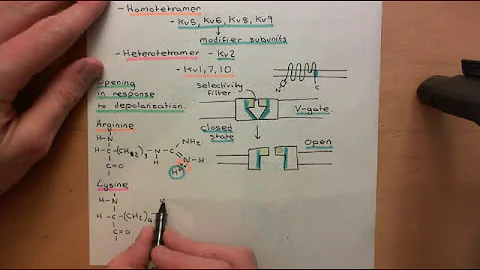 - Homotetramer
- Kv5, Kv6, Kv8, Kv9
modifier subunits
- Heterotetramer - Kv2
- Kv1, 7, 10
N
C
Opening
in response
to depolarization.
Selectivity
filter
V-gate.
Closed
state
Open
Arginine
H-N
H-C-(CH2)3-N-C
NH2
N-H
H
H+
C=O
Lysine
H-N
H-C-(CH2)4
C=O